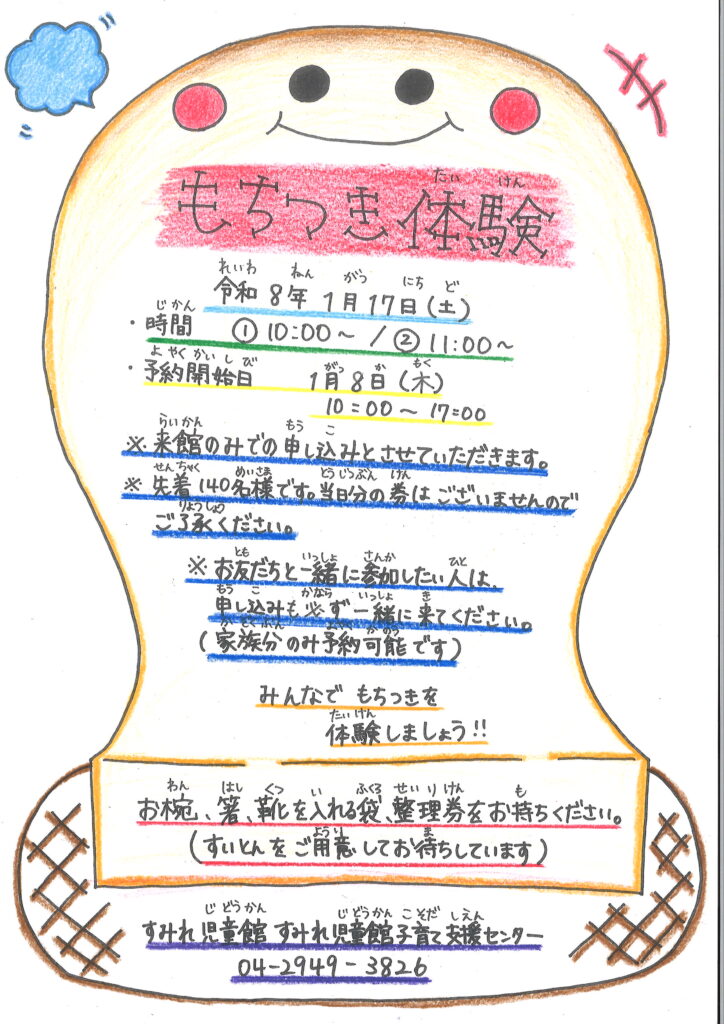 もちつき体験
令和8年1月17日(土)
・時間 ①10:00～/②11:00～
・予約開始日 1月8日(木)
10:00～17:00
※来館のみでの申し込みとさせていただきます。
※先着140名様です。当日分の券はございませんので
ご了承ください。
※お友だちと一緒に参加したい人は、
申し込みも必ず一緒に来てください。
(家族分のみ予約可能です)
みんなでもちつきを
体験しましょう!!
お椀、箸、靴を入れる袋、整理券をお持ちください。
(すいとんをご用意してお待ちしています)
すみれ児童館 すみれ児童館子育て支援センター
04-2949-3826